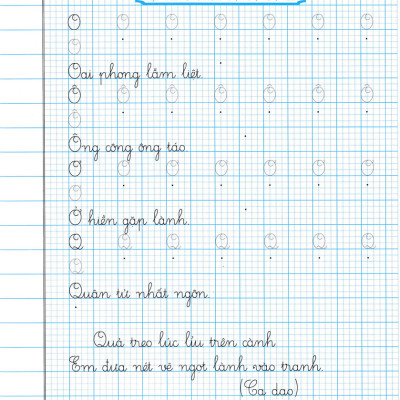 O O O O O O O
O
Oai phong lẫm liệt.
Ô Ô Ô Ô Ô Ô Ô
Ô
Ông công ông táo.
Ơ Ơ Ơ Ơ Ơ Ơ Ơ
Ơ
Ở hiền gặp lành.
Q Q Q Q Q Q Q
Q
Quân tử nhất ngôn.
Quả treo lúc lỉu trên cành
Em đưa nét vẽ ngọt lành vào tranh.
(Ca dao)